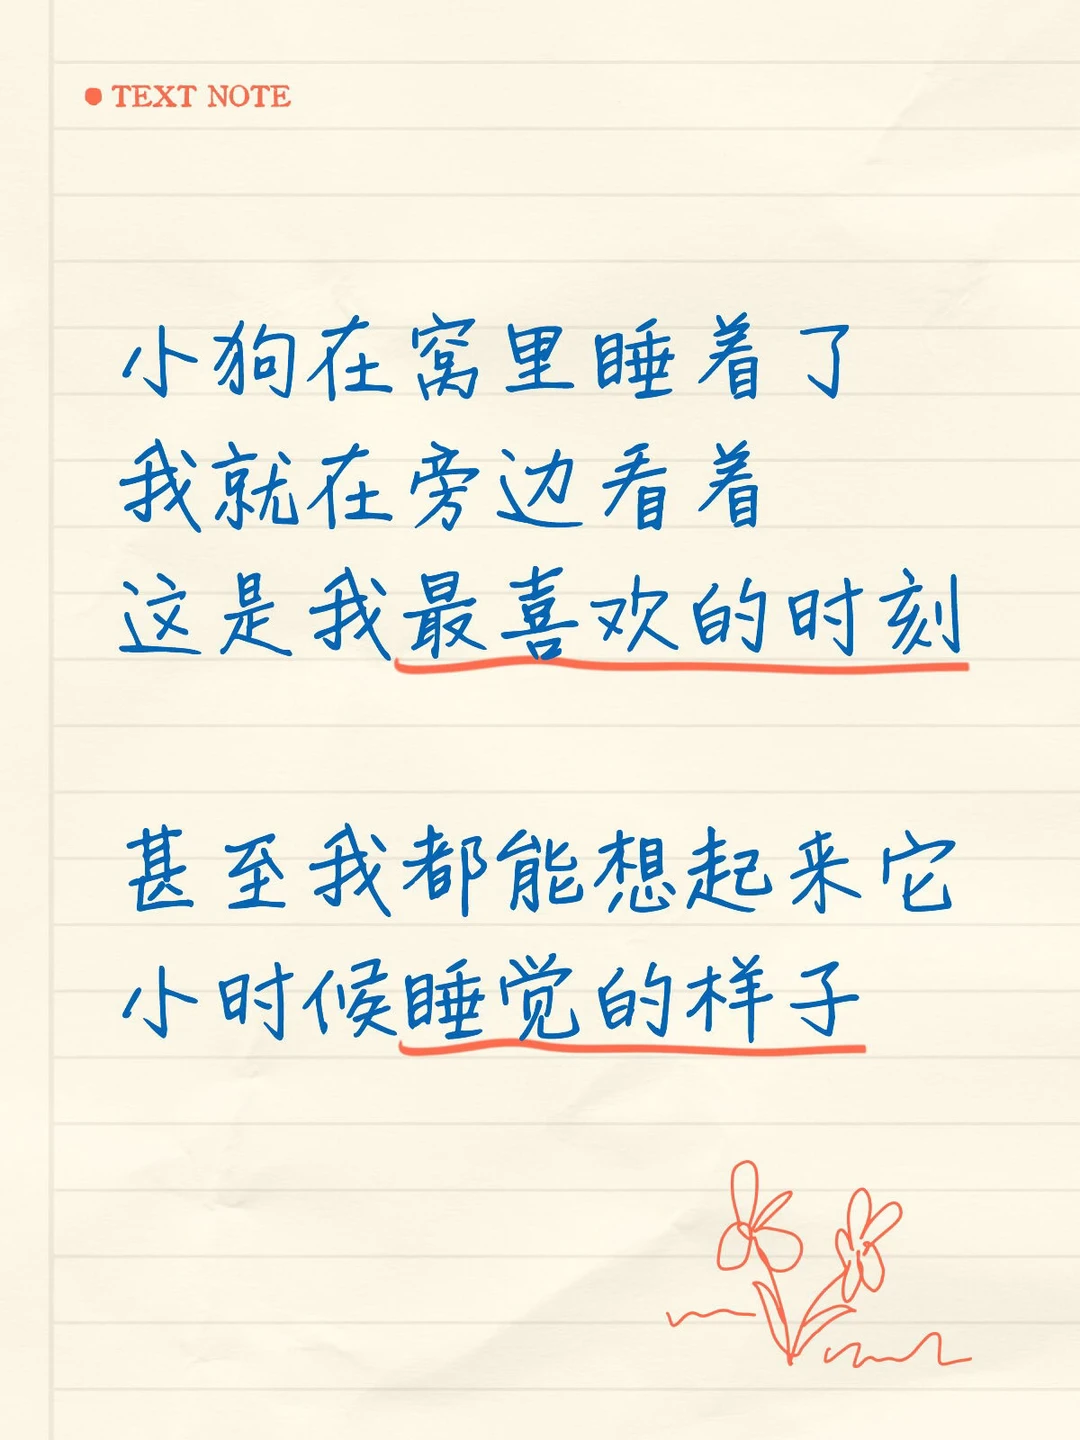 TEXT NOTE
小狗在窝里睡着了
我就在旁边看着
这是我最喜欢的时刻
甚至我都能想起来它
小时候睡觉的样子